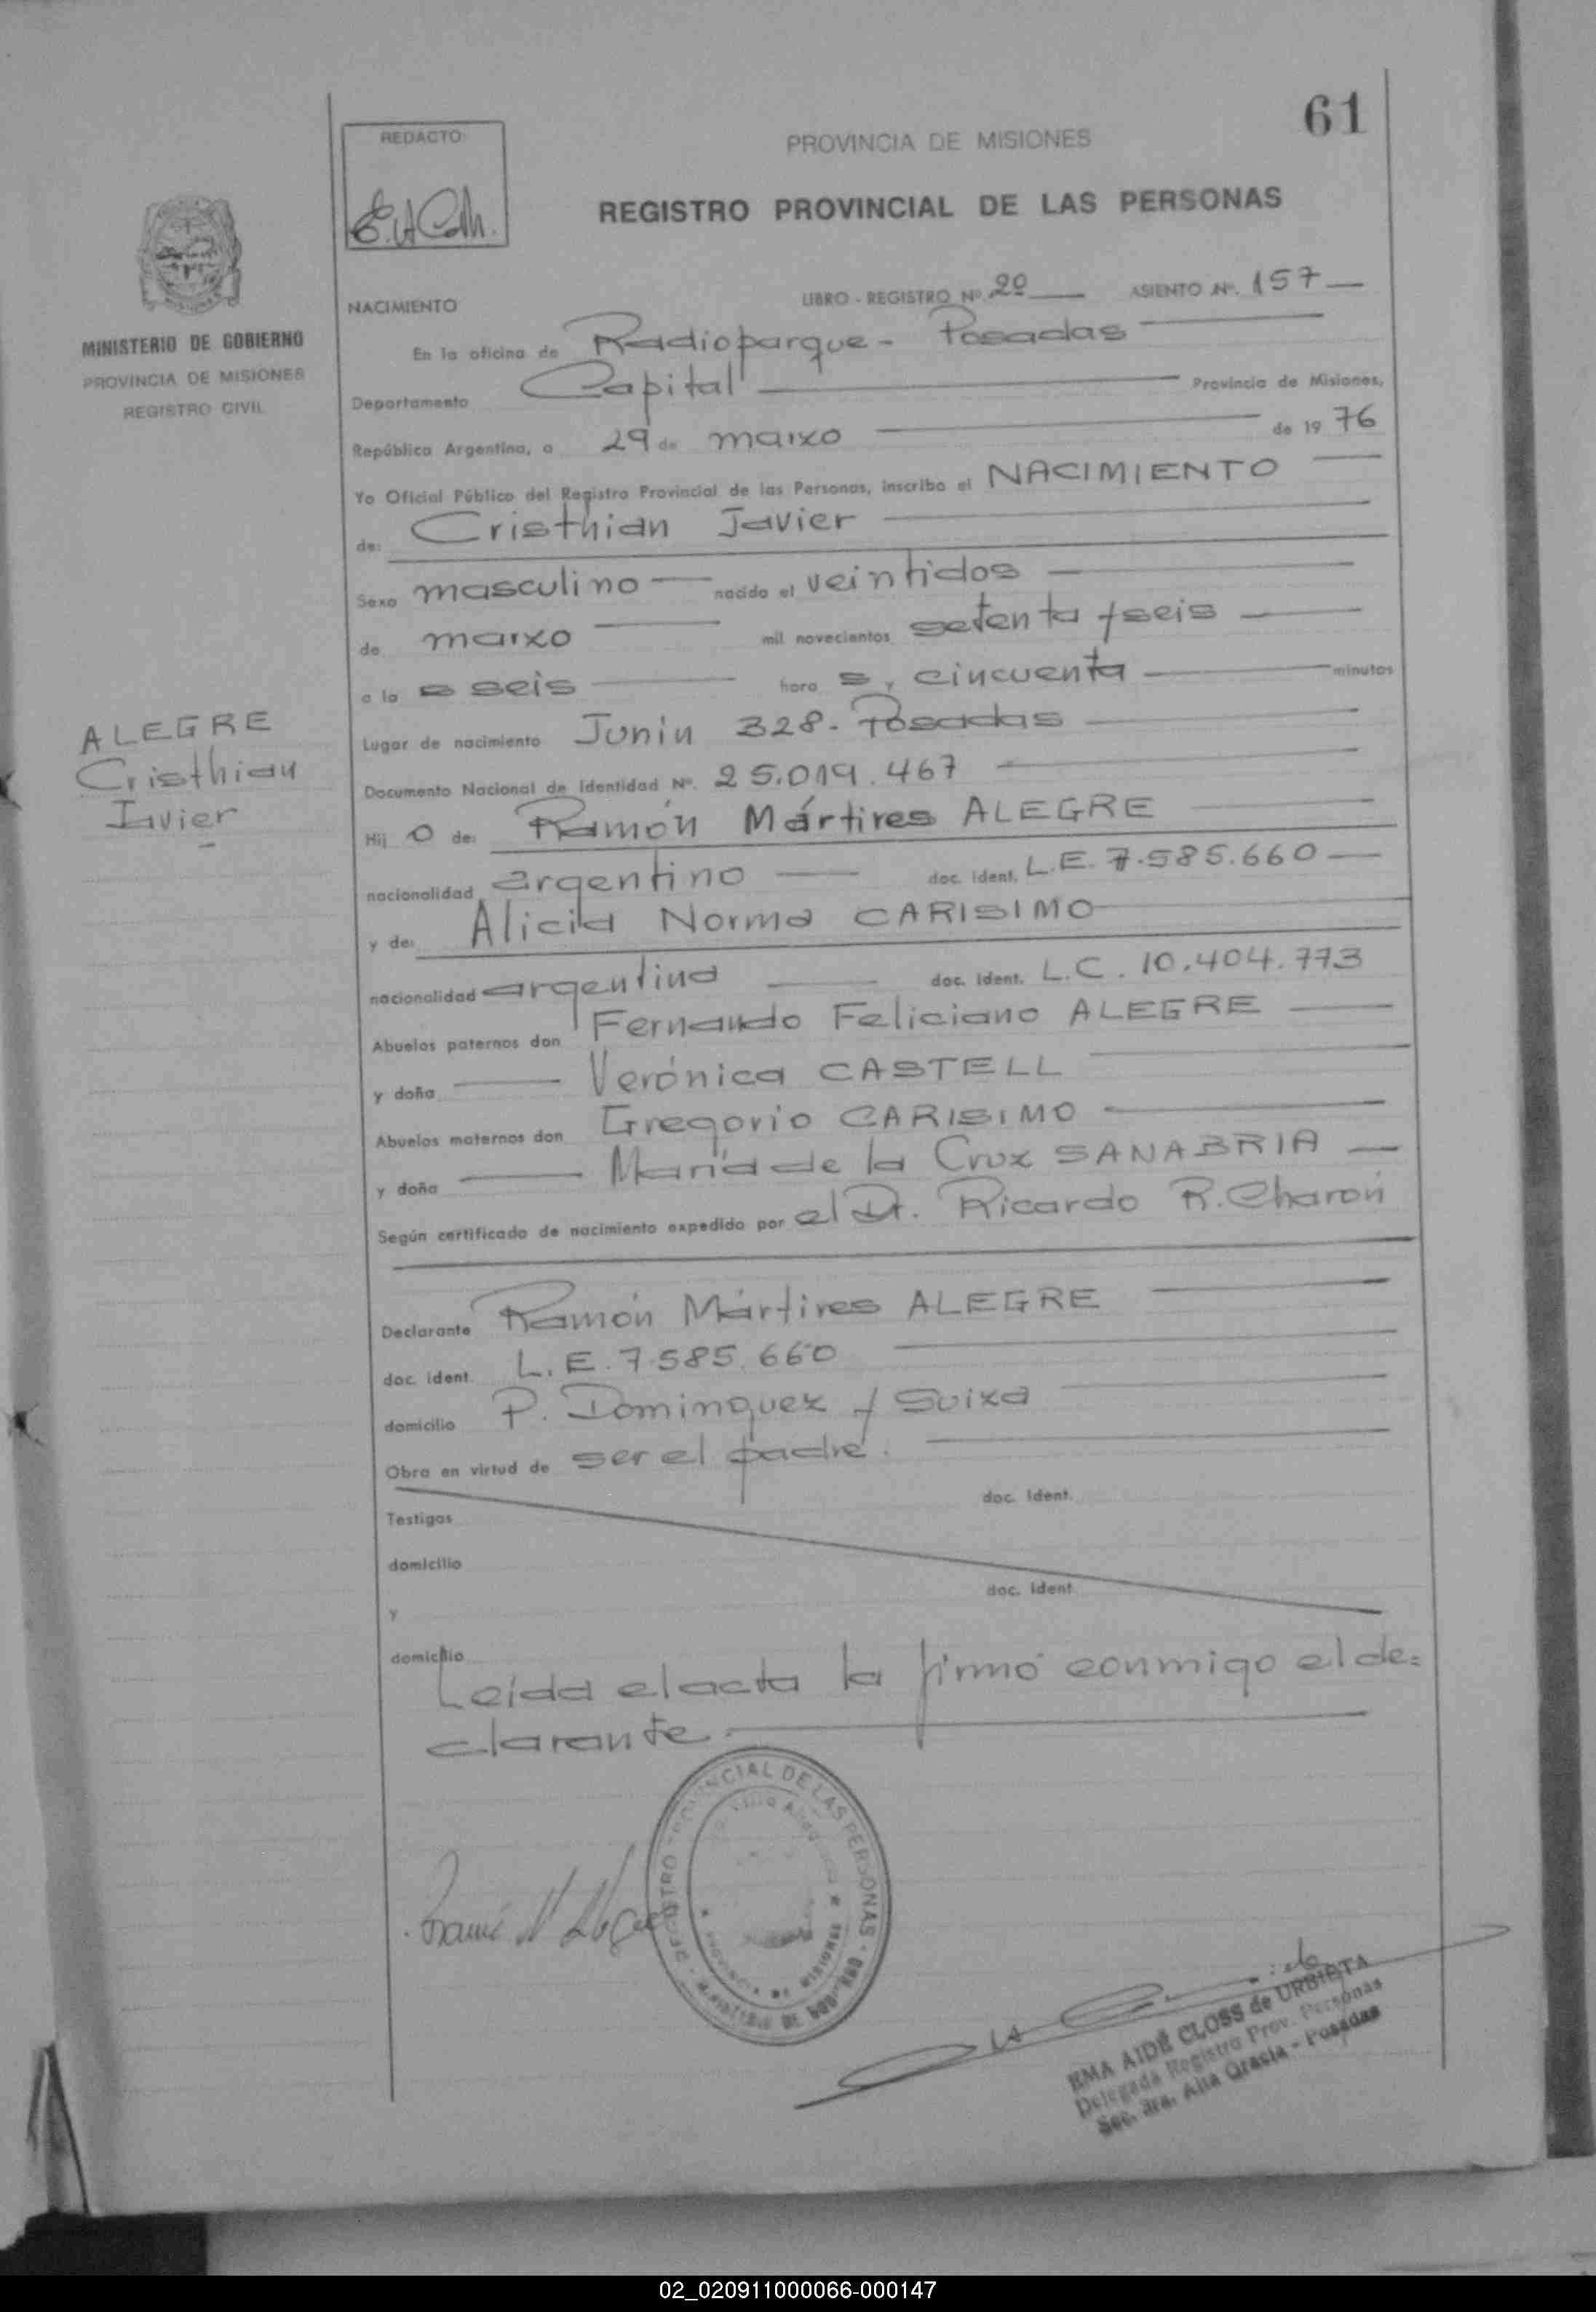 61
REDACTO:
PROVINCIA DE MISIONES
REGISTRO PROVINCIAL DE LAS PERSONAS
MINISTERIO DE GOBIERNO
PROVINCIA DE MISIONES
REGISTRO CIVIL
NACIMIENTO LIBRO - REGISTRO Nº. 2º ASIENTO Nº. 157
En la oficina de Radioparque - Posadas
Departamento Capital Provincia de Misiones,
República Argentina, a 29 de marzo de 19 76
Yo Oficial Público del Registro Provincial de las Personas, inscribo el NACIMIENTO
de: Cristhian Javier
Sexo masculino nacido el veintidos
de marzo mil novecientos setenta y seis
a la s seis hora s, cincuenta minutos
Lugar de nacimiento Junin 328 - Posadas
Documento Nacional de Identidad Nº. 25.019.467
ALEGRE
Cristhian
Javier
Hij o de: Ramón Mártires ALEGRE
nacionalidad argentino doc. ident. L.E. 7.585.660
y de: Alicia Norma CARISIMO
nacionalidad argentina doc. ident. L.C. 10.404.773
Abuelos paternos don Fernando Feliciano ALEGRE
y doña Verónica CASTELL
Abuelos maternos don Gregorio CARISIMO
y doña María de la Cruz SANABRIA
Según certificado de nacimiento expedido por el Dr. Ricardo R. Charon
Declarante Ramón Mártires ALEGRE
doc. ident. L.E. 7.585.660
domicilio P. Dominguez y Suiza
Obra en virtud de ser el padre.
doc. ident.
Testigos
domicilio
doc. ident.
y
domicilio
Leída el acta la firmó conmigo el de=
clarante.
REGISTRO PROVINCIAL DE LAS PERSONAS - MINISTERIO DE GOBIERNO
PROVINCIA DE MISIONES
EMA AIDÉ CLOSS de URBIETA
Delegada Registro Prov. Personas
Sec. 3ra. Alta Gracia - Posadas
02_020911000066-000147